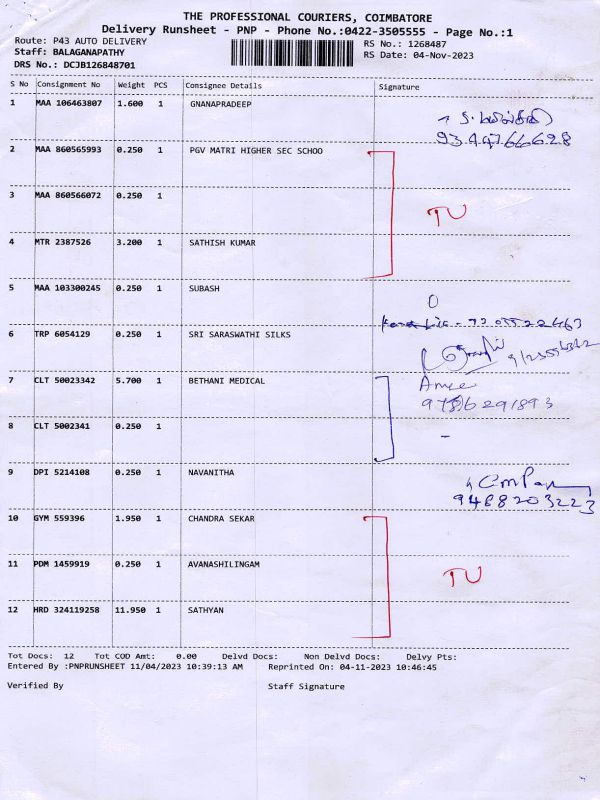 THE PROFESSIONAL COURIERS, COIMBATORE
Delivery Runsheet - PNP - Phone No.:0422-3505555 - Page No.:1
Route: P43 AUTO DELIVERY RS No.: 1268487
Staff: BALAGANAPATHY RS Date: 04-Nov-2023
DRS No.: DCJB126848701
S No Consignment No Weight PCS Consignee Details Signature
1 MAA 106463807 1.600 1 GNANAPRADEEP
9344766628
2 MAA 860565993 0.250 1 PGV MATRI HIGHER SEC SCHOO
3 MAA 860566072 0.250 1
TU
4 MTR 2387526 3.200 1 SATHISH KUMAR
5 MAA 103300245 0.250 1 SUBASH
6 TRP 6054129 0.250 1 SRI SARASWATHI SILKS
7 CLT 50023342 5.700 1 BETHANI MEDICAL
8 CLT 5002341 0.250 1
9 DPI 5214108 0.250 1 NAVANITHA
9488203223
10 GYM 559396 1.950 1 CHANDRA SEKAR
11 PDM 1459919 0.250 1 AVANASHILINGAM
TU
12 HRD 324119258 11.950 1 SATHYAN
Tot Docs: 12 Tot COD Amt: 0.00 Delvd Docs: Non Delvd Docs: Delvy Pts:
Entered By :PNPRUNSHEET 11/04/2023 10:39:13 AM Reprinted On: 04-11-2023 10:46:45
Verified By Staff Signature